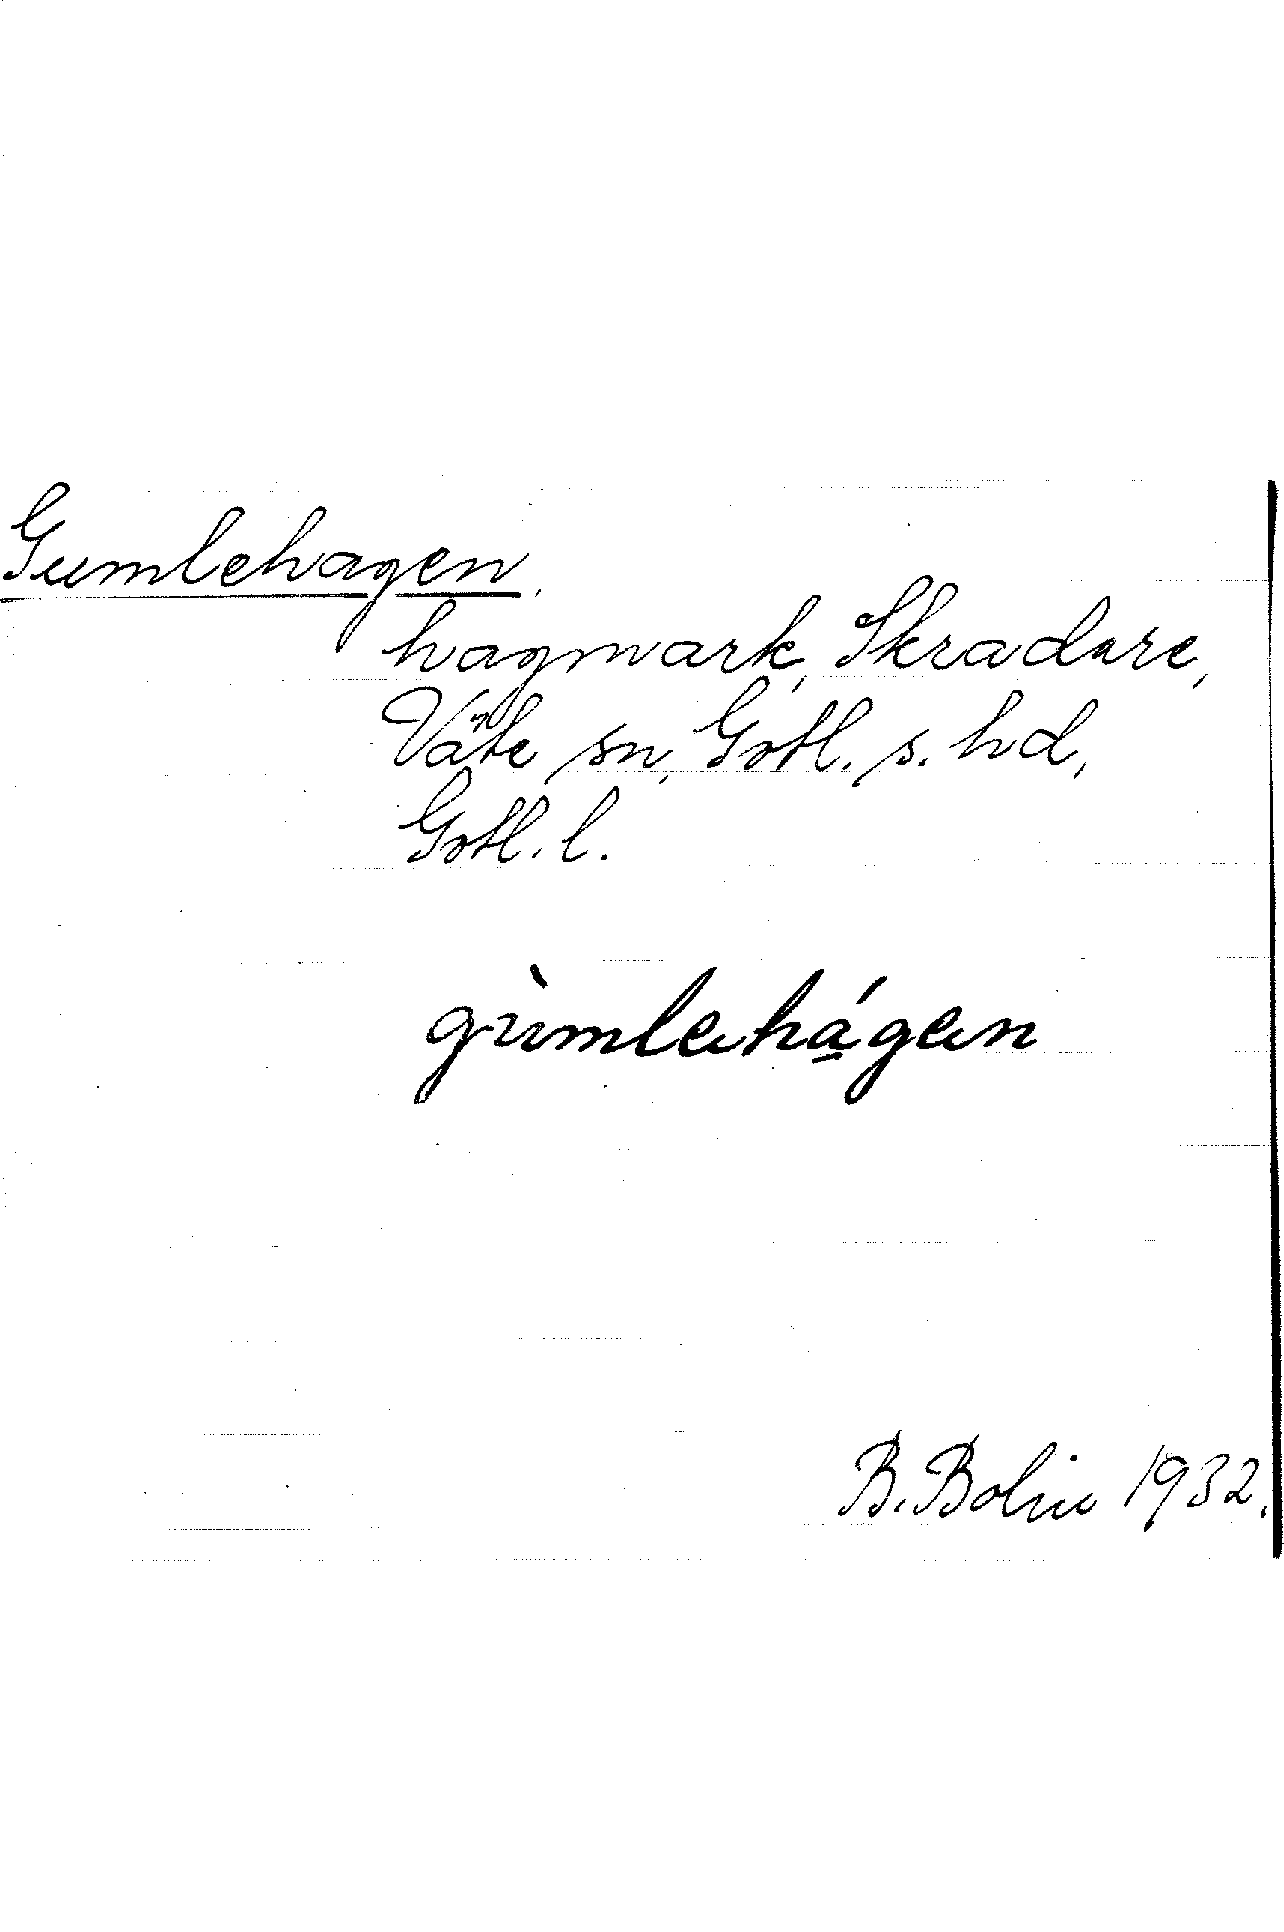 Gumlehagen,
hagmark, Skradarve,
Väte sn, Gotl. s. hd,
Gotl. l.
gùmlehágen
B. Bolin 1932.